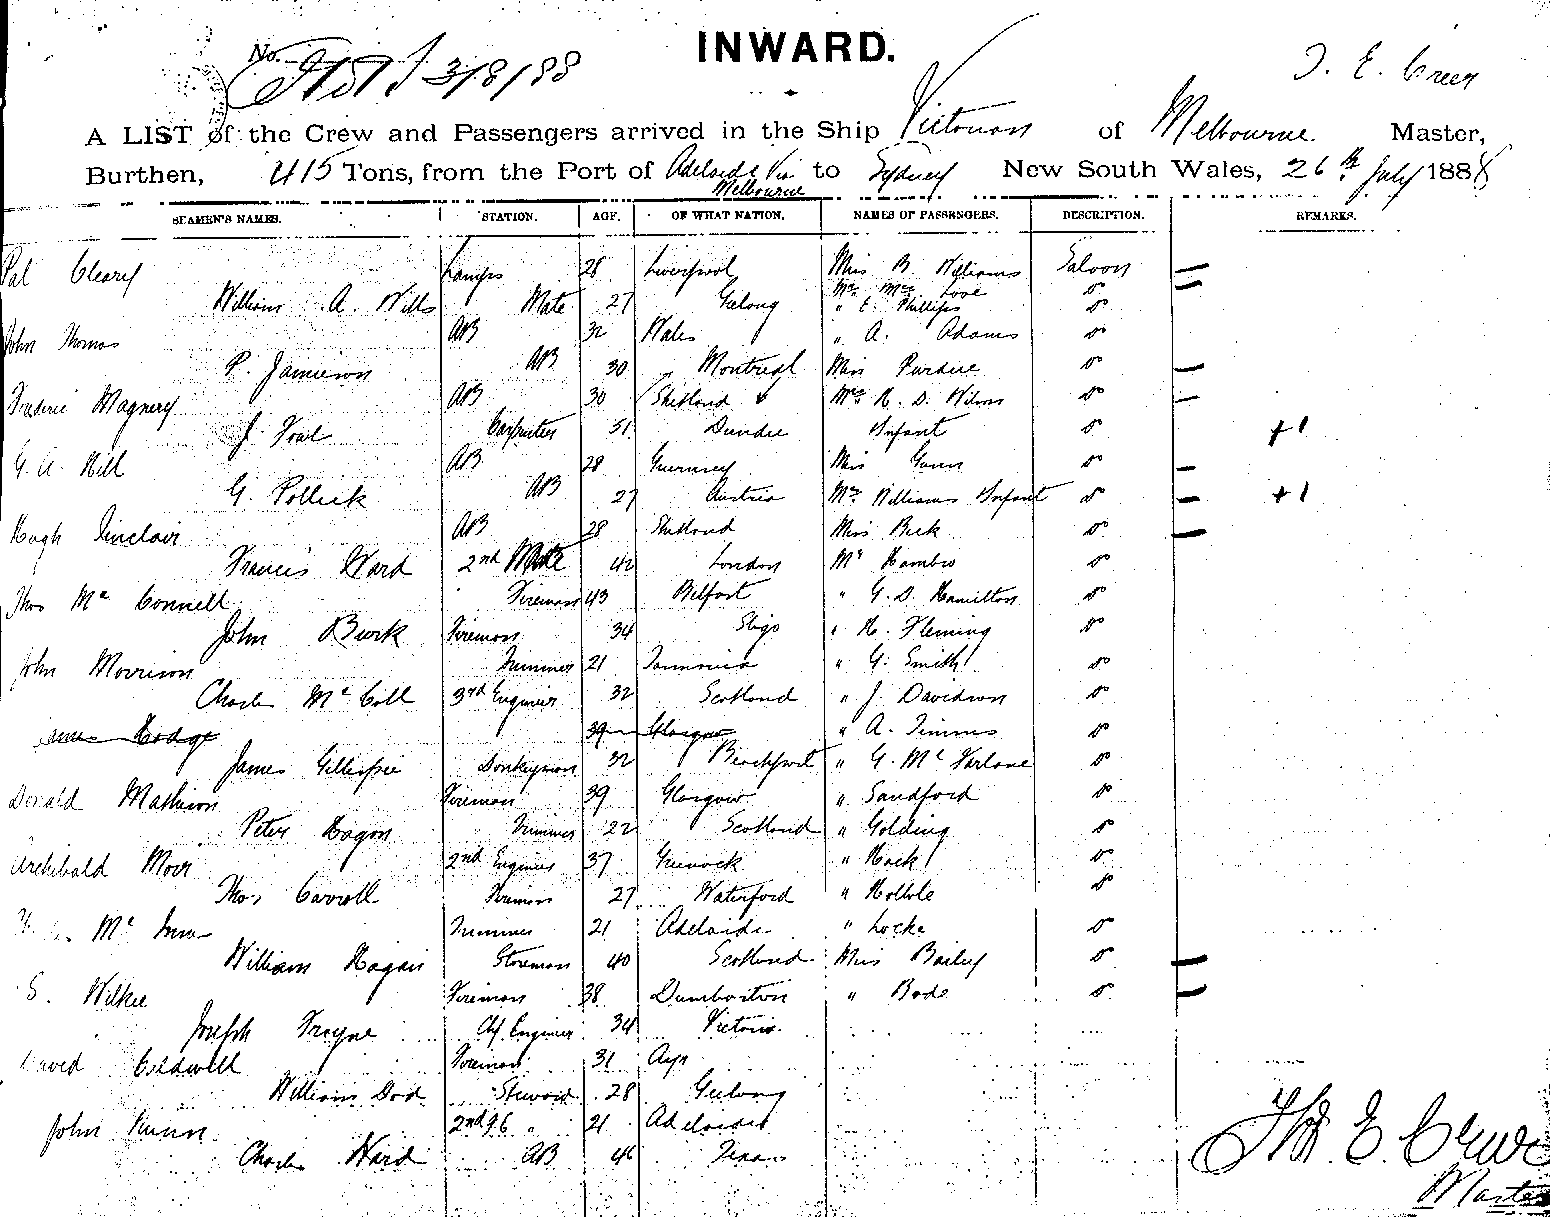 INWARD.
No. 3/8/88
T. E. Creer
A LIST of the Crew and Passengers arrived in the Ship Victorian of Melbourne Master,
Burthen, 415 Tons, from the Port of Adelaide Via Melbourne to Sydney New South Wales, 26th July 1888
SEAMEN'S NAMES. STATION. AGE. OF WHAT NATION. NAMES OF PASSENGERS. DESCRIPTION. REMARKS.
Pat Cleary Lamps 28 Liverpool Miss B. Williams Saloon
William A. Wills Mate 27 Geelong Mrs Love Do
" E. Phillips Do
John Thomas AB 32 Wales " A. Adams Do
P. Jamieson AB 30 Montreal Miss Purdue Do
Magnery AB 30 Shetland Mrs R. D. Wilson Do
J. Carpenter 51 Dundee Infant Do +1
G. A. Hill AB 28 Guernsey Miss Gunn Do
G. Pollick AB 27 Austria Mrs Williams Infant Do +1
Hugh Sinclair AB 28 Shetland Miss Beck Do
Francis Ward 2nd Mate 42 London Mr Hambro Do
Thos McConnell Fireman 43 Belfast " G. D. Hamilton Do
John Burk Fireman 34 Sligo " R. Fleming Do
John Morrison Trimmer 21 Tasmania " G. Smith Do
Charles McColl 3rd Engineer 32 Scotland " J. Davidson Do
James Hodge 39 Glasgow " A. Timms Do
James Gillespie Donkeyman 32 " G. McFarlane Do
Donald Mathison Fireman 39 Glasgow " Sandford Do
Peter Hagon Trimmer 22 Scotland " Golding Do
Archibald Moir 2nd Engineer 37 Greenock " Hack Do
Thos Carroll Fireman 27 Waterford " Do
Mc Trimmer 21 Adelaide " Locke Do
William Hagan Storeman 40 Scotland Miss Bailey Do
S. Wilkie Fireman 38 Dumbarton " Bode Do
Joseph Frayne Chf. Engineer 34 Victoria
David Caldwell Fireman 31 Ayr
William Dod Steward 28 Geelong
John 2nd " 21 Adelaide
Charles Ward AB 46 Texas
Thos. E. Creer
Master